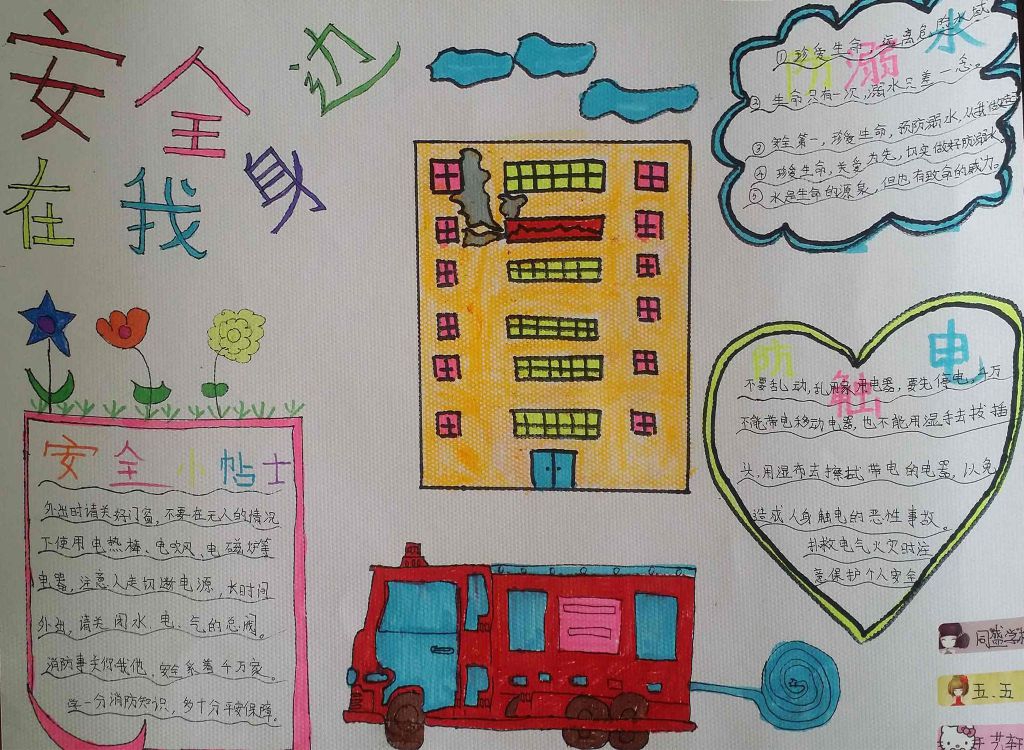 安全在我身边
防溺水
①珍爱生命，远离危险水域
②生命只有一次，溺水只差一念。
③安全第一，珍爱生命，预防溺水，从我做起
④珍爱生命，关爱为先，切实做好防溺水。
⑤水是生命的源泉，但也有致命的威力。
防触电
不要乱动，乱用家用电器，要先停电，千万
不能带电移动电器，也不能用湿手去拔插
头，用湿布去擦拭带电的电器，以免
造成人身触电的恶性事故。
扑救电气火灾时注
意保护个人安全
安全小帖士
外出时请关好门窗，不要在无人的情况
下使用电热棒、电吹风、电磁炉等
电器，注意人走切断电源，长时间
外出，请关闭水、电、气的总阀。
消防事关你我他，安全系着千万家。
学一分消防知识，多十分平安保障。
同盛学校
五.五